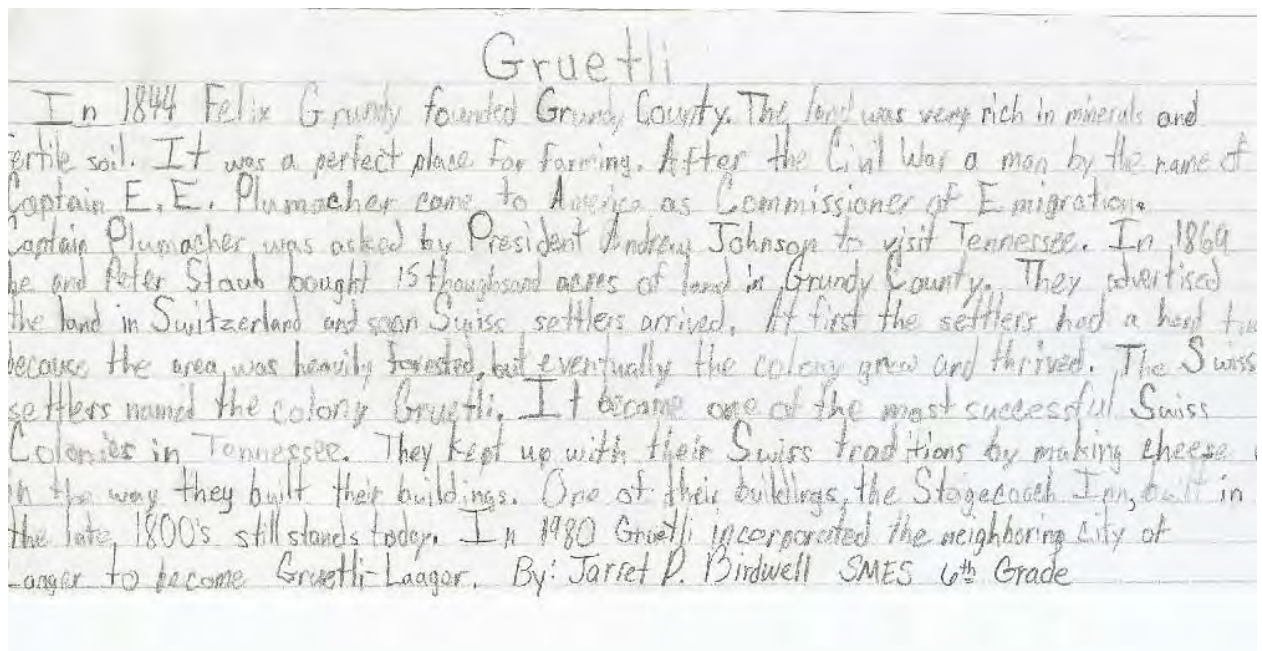 Gruetli
In 1844 Felix Grundy founded Grundy County. The land was very rich in minerals and
ertile soil. It was a perfect place for farming. After the Civil War a man by the name of
Captain E. E. Plumacher came to America as Commissioner of Emigration.
Captain Plumacher was asked by President Andrew Johnson to visit Tennessee. In 1869
he and Peter Staub bought 15 thoughsand acres of land in Grundy County. They advertised
the land in Switzerland and soon Swiss settlers arrived. At first the settlers had a hard
because the area was heavily forested, but eventually the colony grew and thrived. The Swiss
settlers named the colony Gruetli. It became one of the most successful Swiss
Colonies in Tennessee. They kept up with their Swiss traditions by making cheese
in the way they built their buildings. One of their buildings, the Stagecoach Inn, built in
the late 1800's still stands today. In 1980 Gruetli incorporated the neighboring city of
Laager to become Gruetli-Laager. By: Jarret D. Birdwell SMES 6th Grade